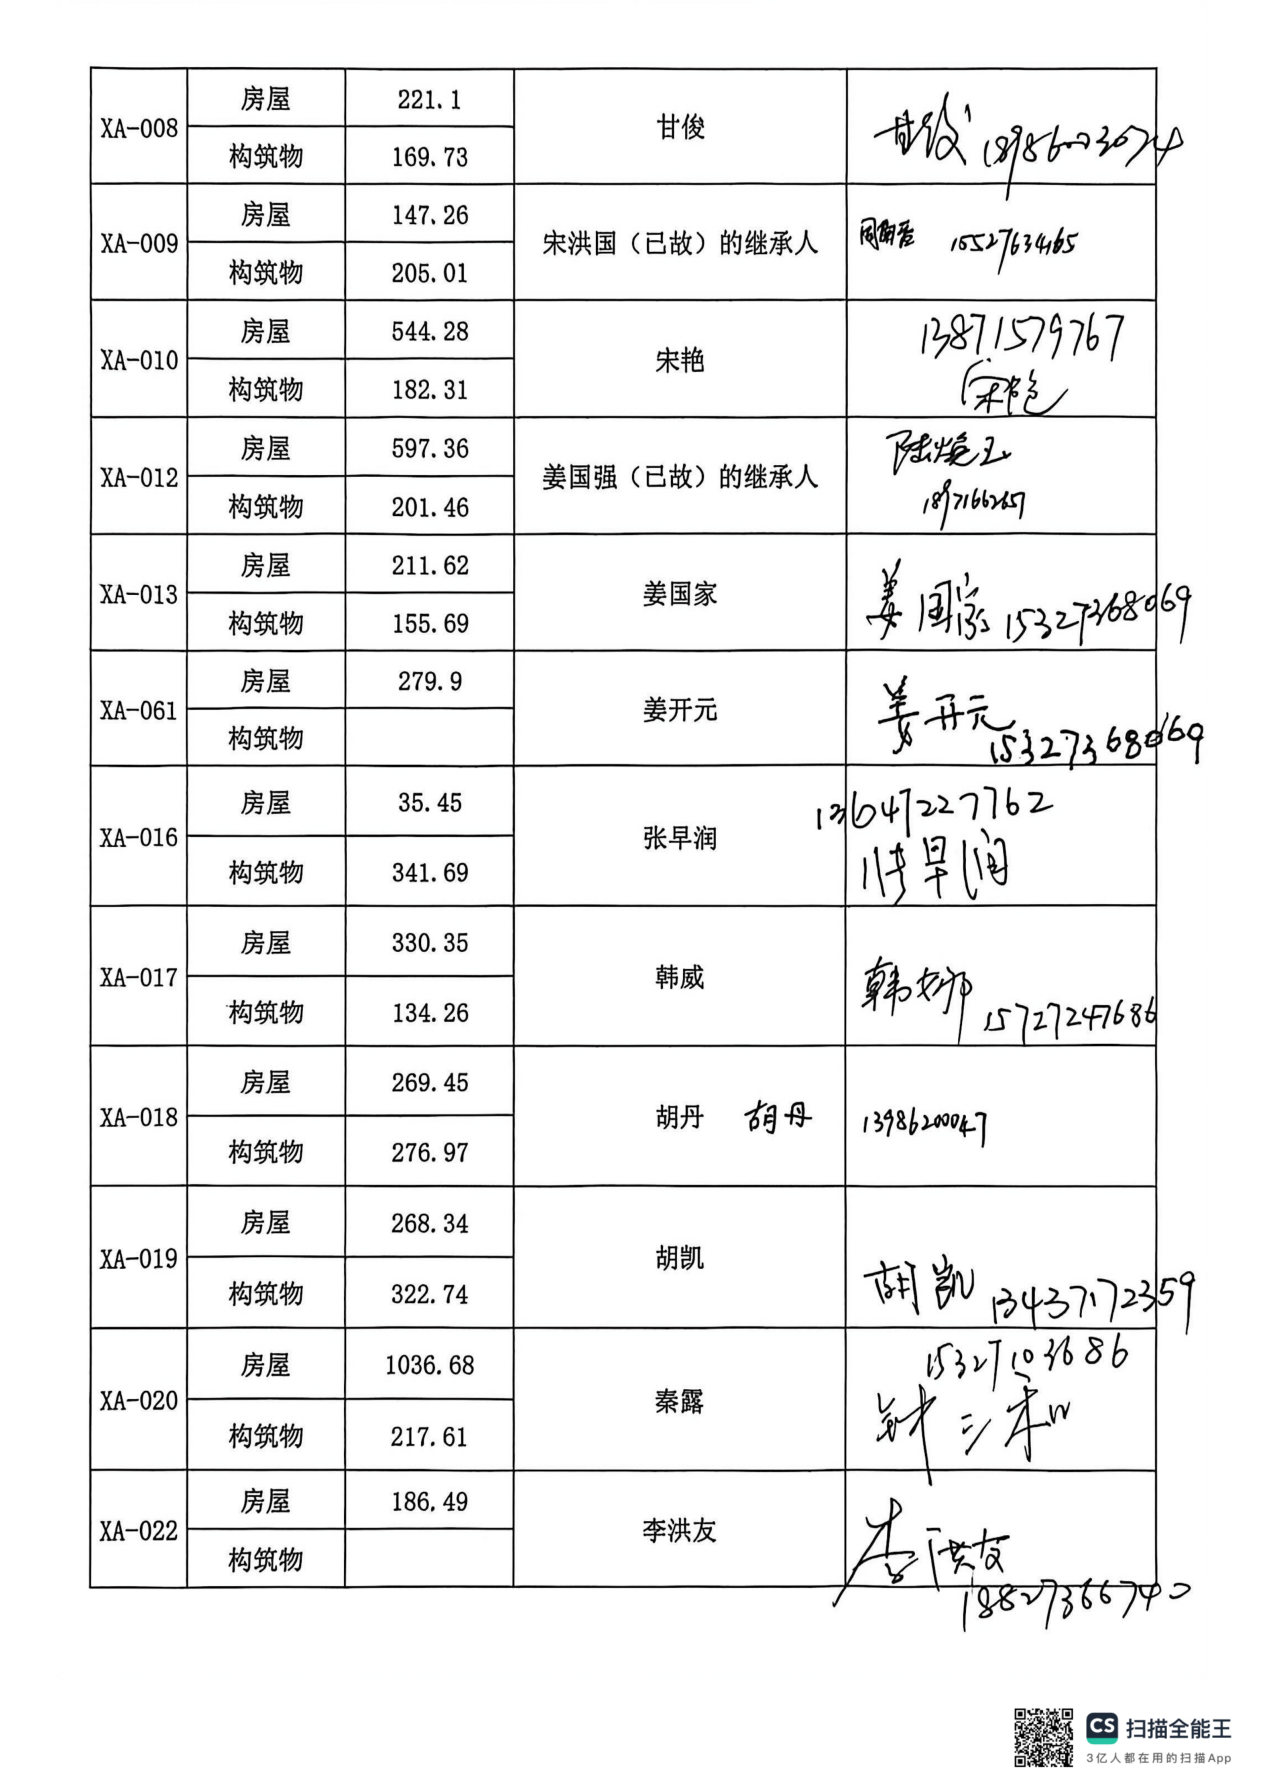 XA-008 房屋 221.1 甘俊 甘俊
构筑物 169.73
XA-009 房屋 147.26 宋洪国（已故）的继承人 15527634165
构筑物 205.01
XA-010 房屋 544.28 宋艳 13871579767
构筑物 182.31 宋艳
XA-012 房屋 597.36 姜国强（已故）的继承人
构筑物 201.46
XA-013 房屋 211.62 姜国家 姜国家 15327368069
构筑物 155.69
XA-061 房屋 279.9 姜开元 姜开元 15327368069
构筑物
XA-016 房屋 35.45 张早润 13647227762
构筑物 341.69 张早润
XA-017 房屋 330.35 韩威 韩娜 15727247686
构筑物 134.26
XA-018 房屋 269.45 胡丹 胡丹 13986200047
构筑物 276.97
XA-019 房屋 268.34 胡凯 胡凯 13437172359
构筑物 322.74
XA-020 房屋 1036.68 秦露 15327103686
构筑物 217.61
XA-022 房屋 186.49 李洪友 李洪友
构筑物 18827366740
CS 扫描全能王
3亿人都在用的扫描App